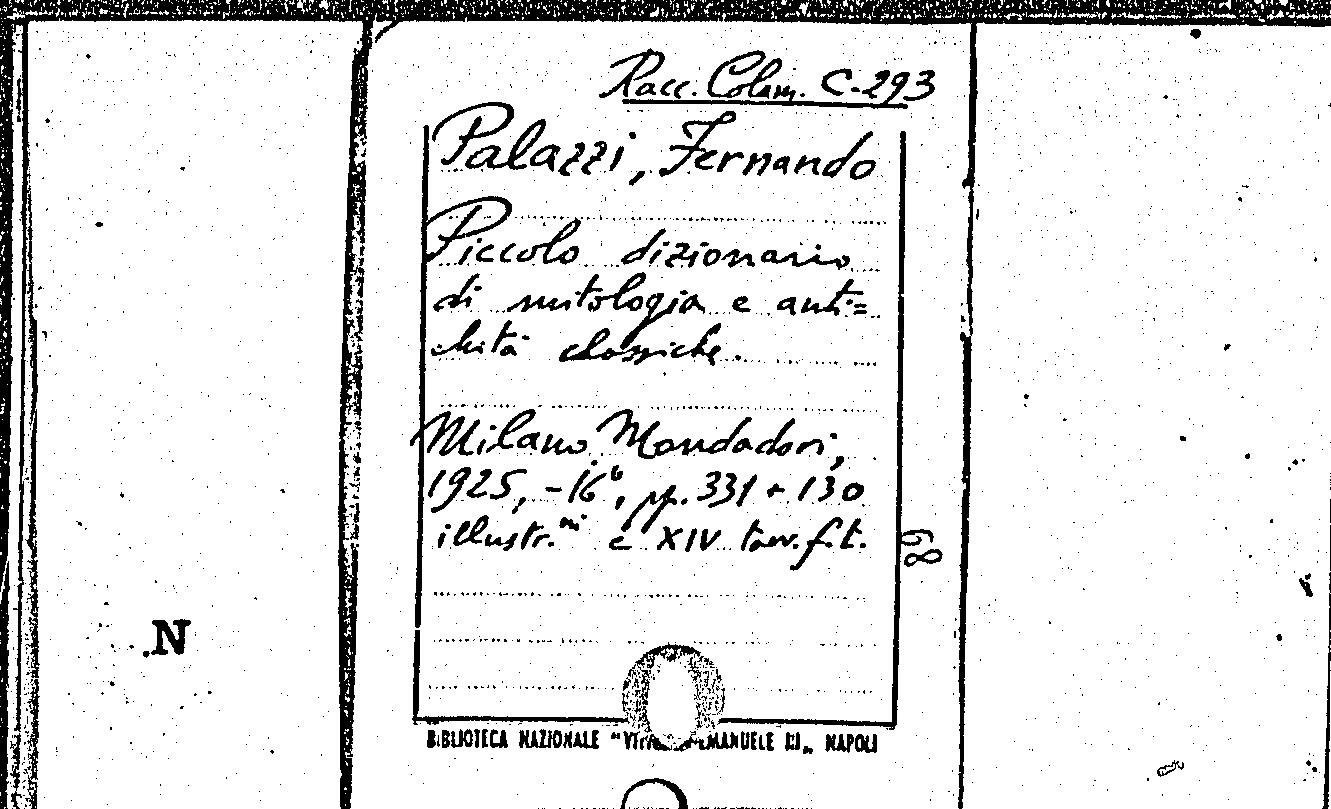 Racc. Colam. C-293
Palazzi, Fernando
Piccolo dizionario
di mitologia e anti=
chità classiche.
Milano Mondadori,
1925, -16°, pp. 331 + 130
illustr.ni e XIV tav. f. t.
68
N
BIBLIOTECA NAZIONALE "VITT EMANUELE III„ NAPOLI